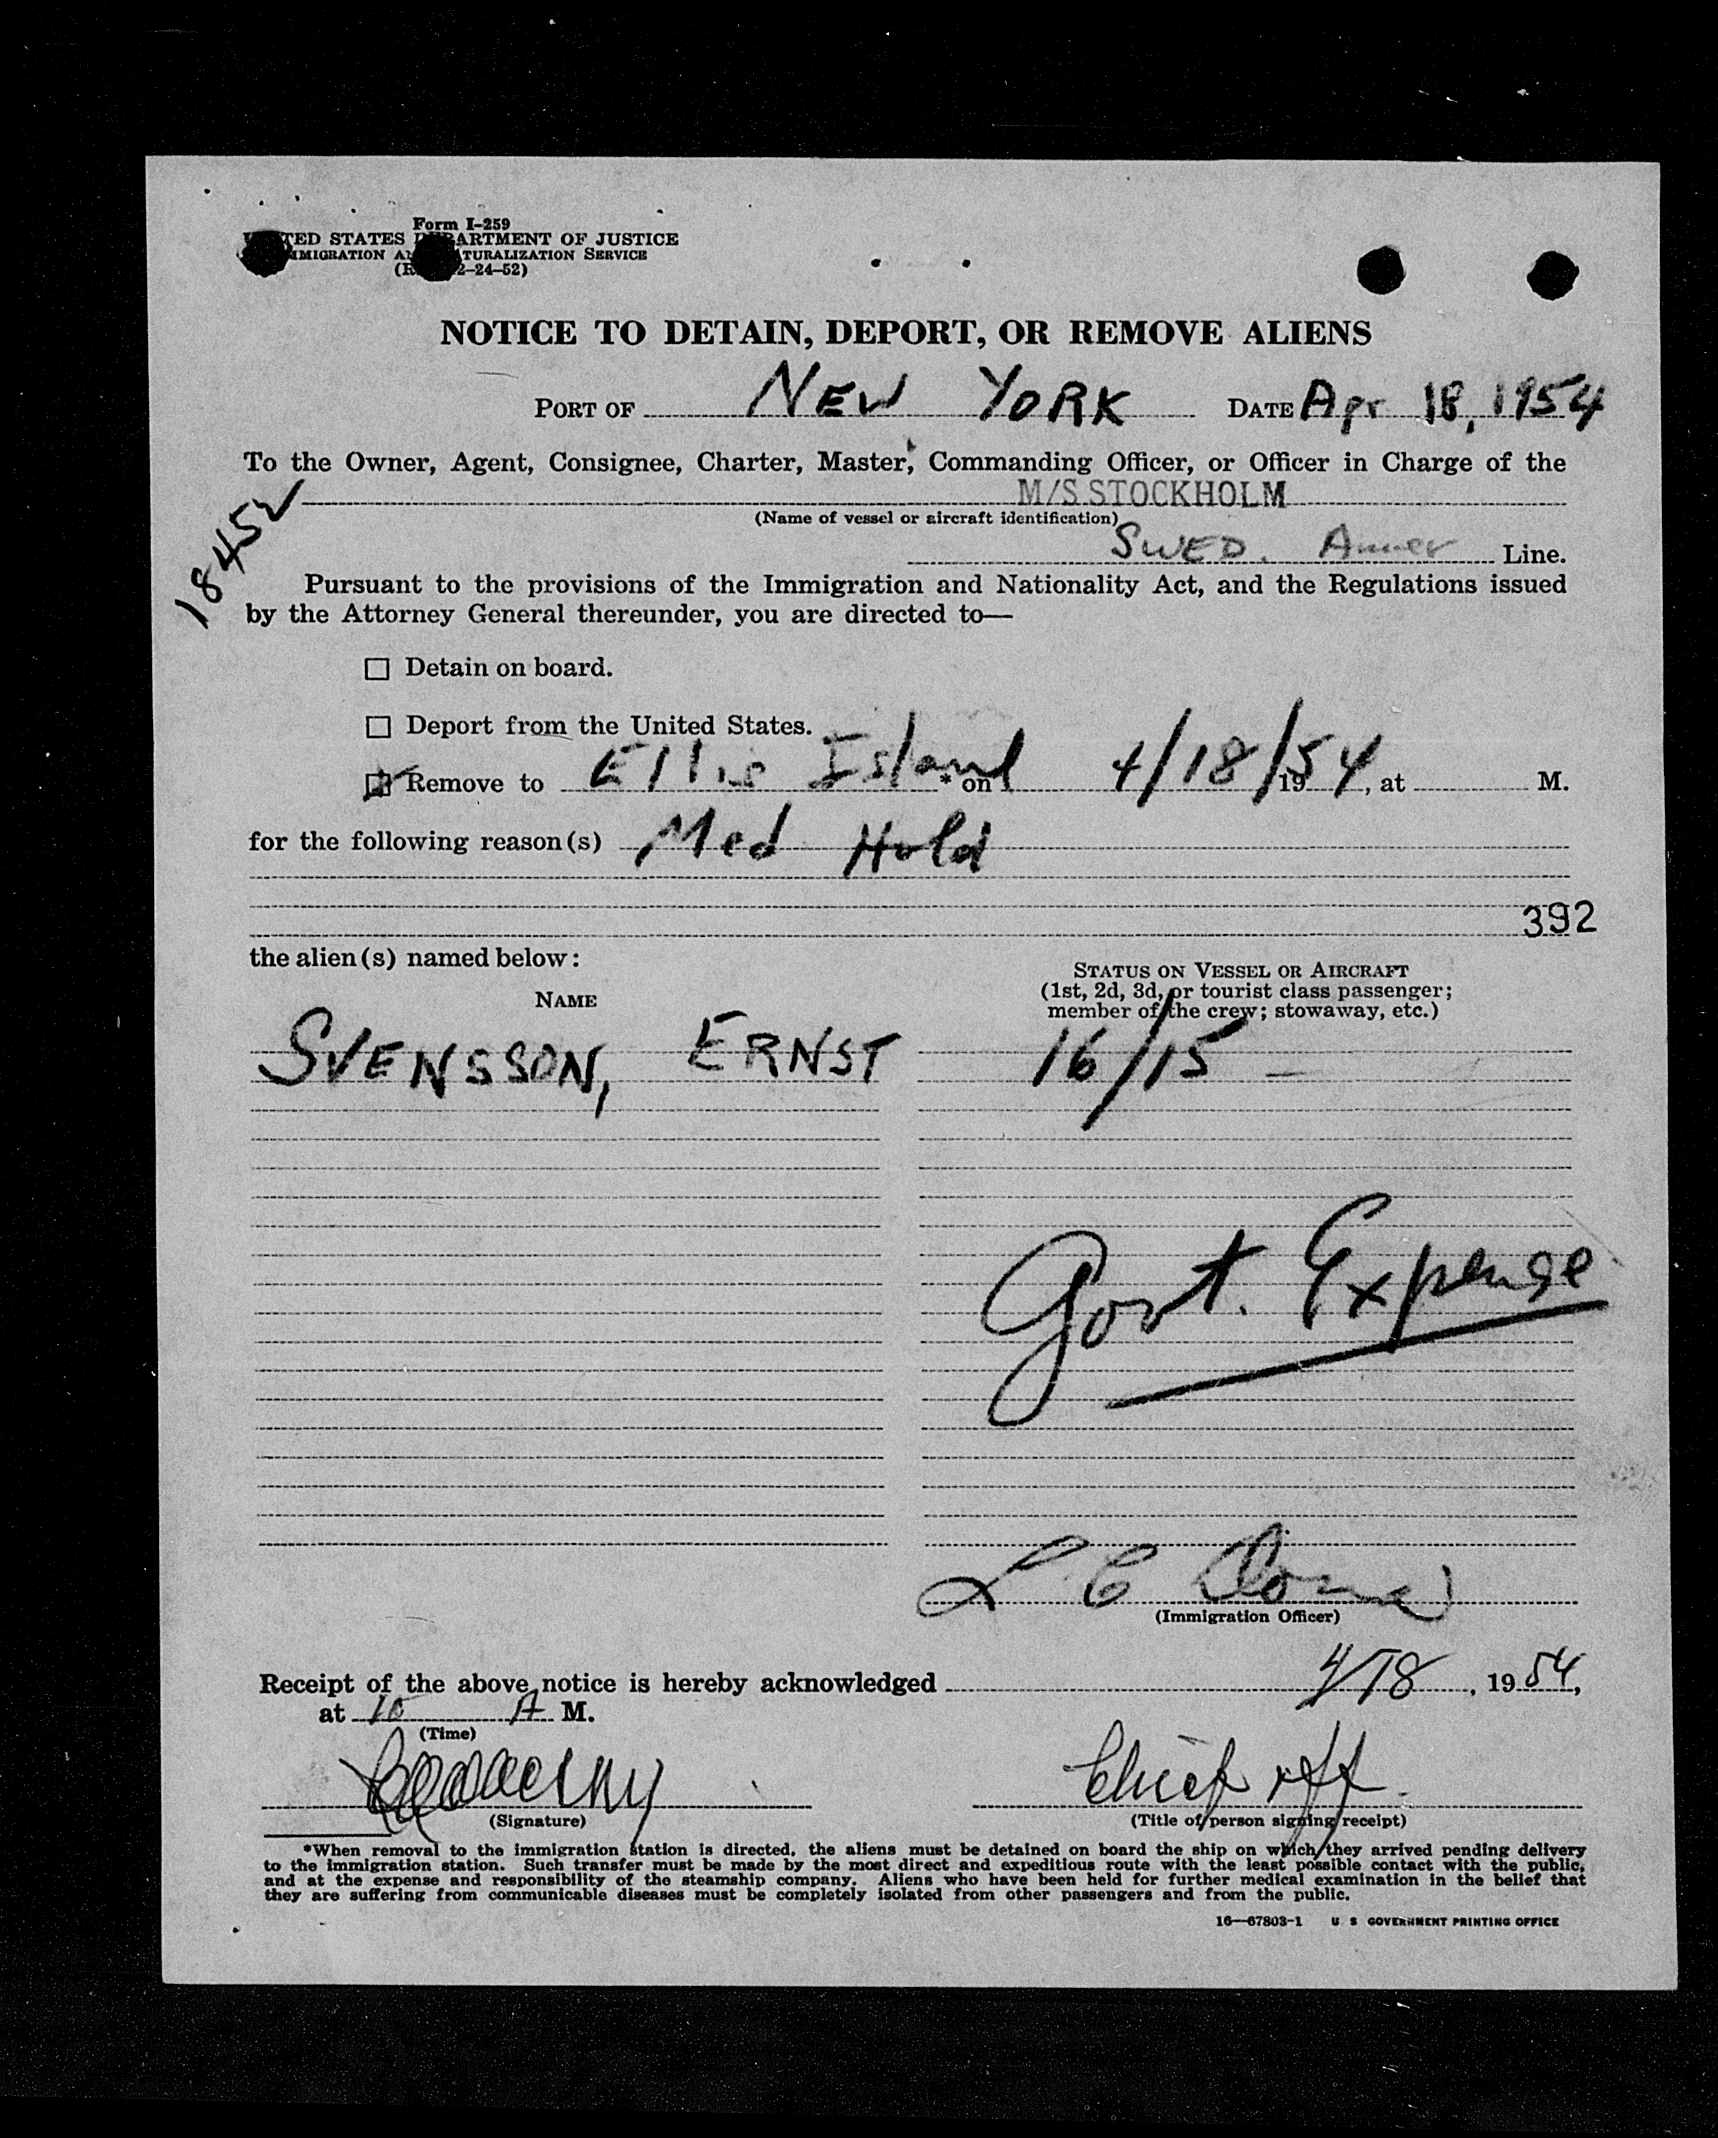 Form I-259
TED STATES ARTMENT OF JUSTICE
MMIGRATION A TURALIZATION SERVICE
2-24-52)
NOTICE TO DETAIN, DEPORT, OR REMOVE ALIENS
PORT OF NEW YORK DATE Apr 18, 1954
To the Owner, Agent, Consignee, Charter, Master, Commanding Officer, or Officer in Charge of the
M/S STOCKHOLM
(Name of vessel or aircraft identification)
18452
SWED. Amer Line.
Pursuant to the provisions of the Immigration and Nationality Act, and the Regulations issued
by the Attorney General thereunder, you are directed to—
☐ Detain on board.
☐ Deport from the United States.
☑ Remove to Ellis Island * on 4/18/1954, at M.
for the following reason(s) Med Hold
392
the alien(s) named below:
NAME
STATUS ON VESSEL OR AIRCRAFT
(1st, 2d, 3d, or tourist class passenger;
member of the crew; stowaway, etc.)
SVENSSON, ERNST 16/15 —
Govt. Expense
L C
(Immigration Officer)
Receipt of the above notice is hereby acknowledged 4/18, 1954,
at 10 A M.
(Time)
Chief Off.
(Signature) (Title of person signing receipt)
*When removal to the immigration station is directed, the aliens must be detained on board the ship on which they arrived pending delivery
to the immigration station. Such transfer must be made by the most direct and expeditious route with the least possible contact with the public,
and at the expense and responsibility of the steamship company. Aliens who have been held for further medical examination in the belief that
they are suffering from communicable diseases must be completely isolated from other passengers and from the public.
16—67803-1 U S GOVERNMENT PRINTING OFFICE